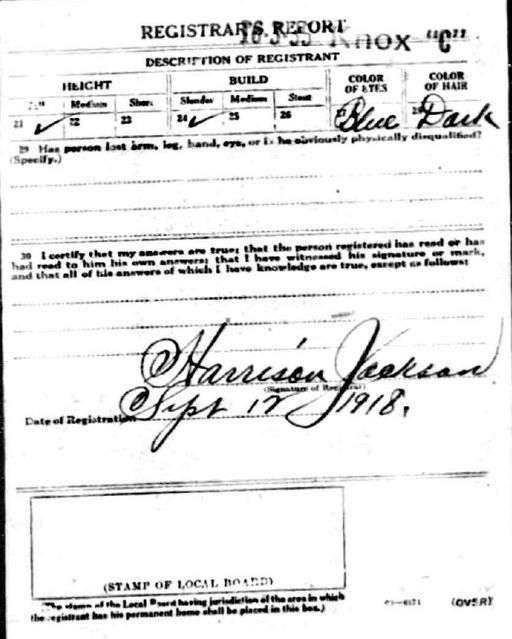 REGISTRAR'S REPORT
Knox "C"
DESCRIPTION OF REGISTRANT
HEIGHT BUILD COLOR OF EYES COLOR OF HAIR
Medium Short Slender Medium Stout
21 ✓ 22 23 24 ✓ 25 26 Blue Dark
29 Has person lost arm, leg, hand, eye, or is he obviously physically disqualified?
(Specify.)
30 I certify that my answers are true; that the person registered has read or has
had read to him his own answers; that I have witnessed his signature or mark,
and that all of his answers of which I have knowledge are true, except as follows:
Harrison Jackson
(Signature of Registrar)
Date of Registration Sept 12 1918.
(STAMP OF LOCAL BOARD)
(The stamp of the Local Board having jurisdiction of the area in which
the registrant has his permanent home shall be placed in this box.)
(OVER)